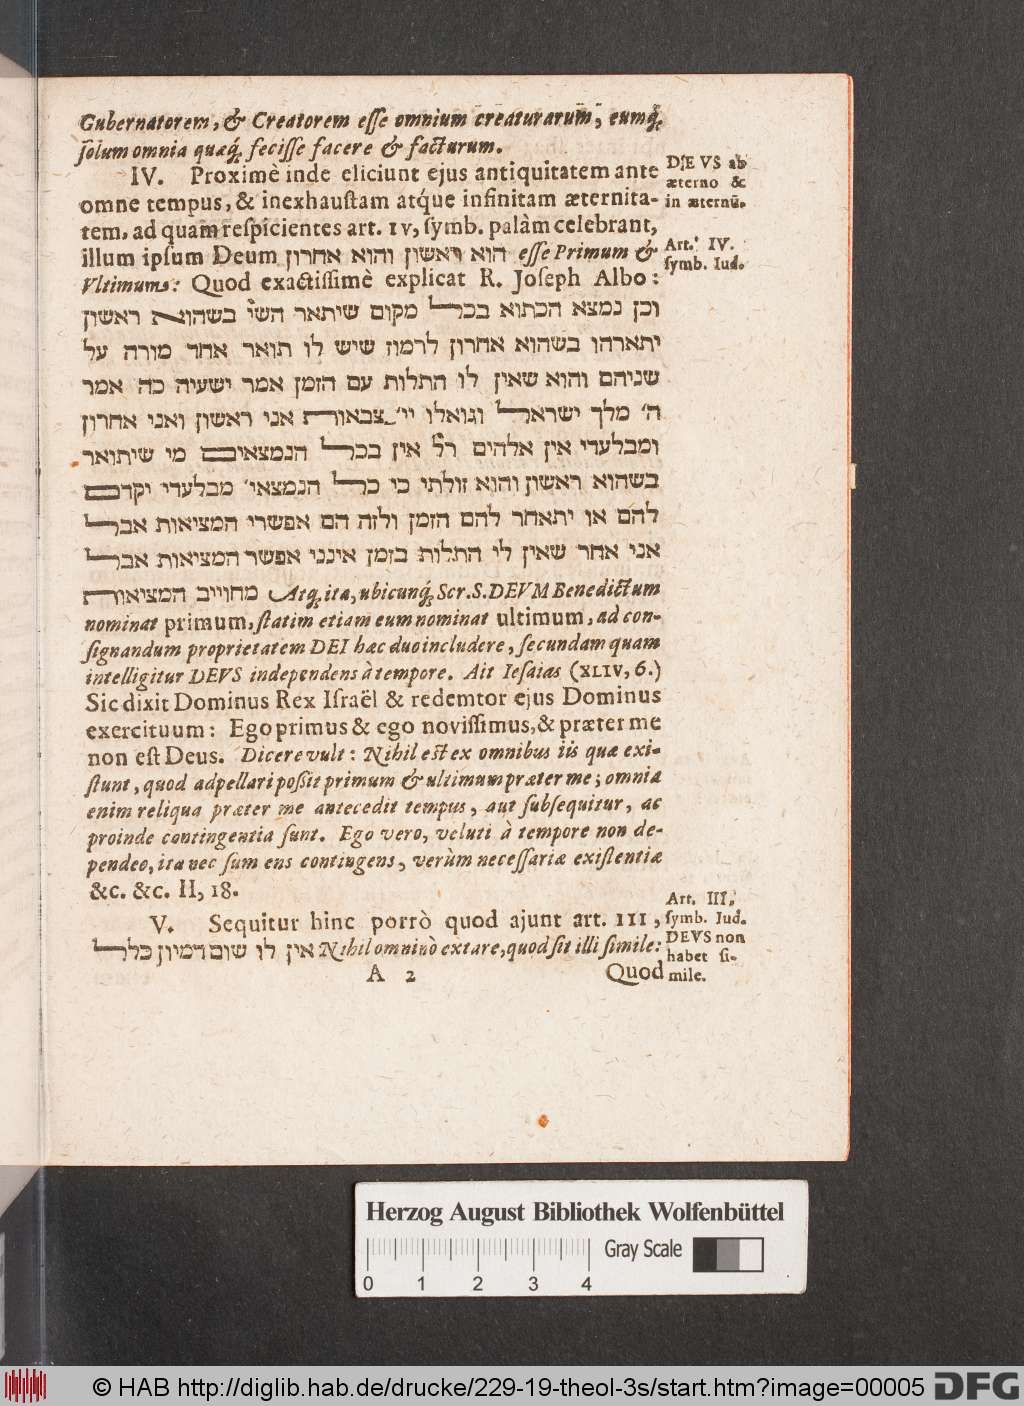 Gubernatorem, & Creatorem esse omnium creaturarum̄, eumq́;
solum omnia quæq́; fecisse facere & facturum.
IV. Proximè inde eliciunt ejus antiquitatem ante
omne tempus, & inexhaustam atq́ue infinitam æternita-
tem, ad quam respicientes art. IV, symb. palàm celebrant,
illum ipsum Deum הוא ראשון והוא אחרון esse Primum &
Vltimum: Quod exactissimè explicat R. Joseph Albo:
DEVS ab
æterno &
in æternū.
Art. IV.
symb. Iud.
וכן נמצא הכתוא בכל מקום שיתאר השי בשהוא ראשון
יתארהו בשהוא אחרון לרמוז שיש לו תואר אחד מורה על
שניהם והוא שאין לו התלות עם הזמן אמר ישעיה כה אמר
ה׳ מלך ישראל וגואלו יי׳ צבאות אני ראשון ואני אחרון
ומבלעדי אין אלהים רל אין בכל הנמצאים מי שיתואר
בשהוא ראשון והוא זולתי כי כל הנמצאי׳ מבלעדי יקדם
להם או יתאחר להם הזמן ולזה הם אפשרי המציאות אבל
אני אחר שאין לי התלות בזמן אינני אפשר המציאות אבל
מחוייב המציאות Atq́; ita, ubicunq́; Scr. S. DEVM Benedictum
nominat primum, statim etiam eum nominat ultimum, ad con-
signandum proprietatem DEI hæc duo includere, secundam quam
intelligitur DEVS independens à tempore. Ait Iesaias (XLIV, 6.)
Sic dixit Dominus Rex Israël & redemtor ejus Dominus
exercituum: Ego primus & ego novissimus, & præter me
non est Deus. Dicere vult: Nihil est ex omnibus iis quæ exi-
stunt, quod adpellari possit primum & ultimum præter me; omnia
enim reliqua præter me antecedit tempus, aut subsequitur, ac
proinde contingentia sunt. Ego vero, veluti à tempore non de-
pendeo, ita nec sum ens contingens, verùm necessariæ existentiæ
&c. &c. II, 18.
V. Sequitur hinc porrò quod ajunt art. III,
אין לו שום דמיון כלל Nihil omninò extare, quod sit illi simile:
Art. III.
symb. Iud.
DEVS non
habet si-
mile.
A 2 Quod
Herzog August Bibliothek Wolfenbüttel
Gray Scale
0 1 2 3 4
© HAB http://diglib.hab.de/drucke/229-19-theol-3s/start.htm?image=00005 DFG